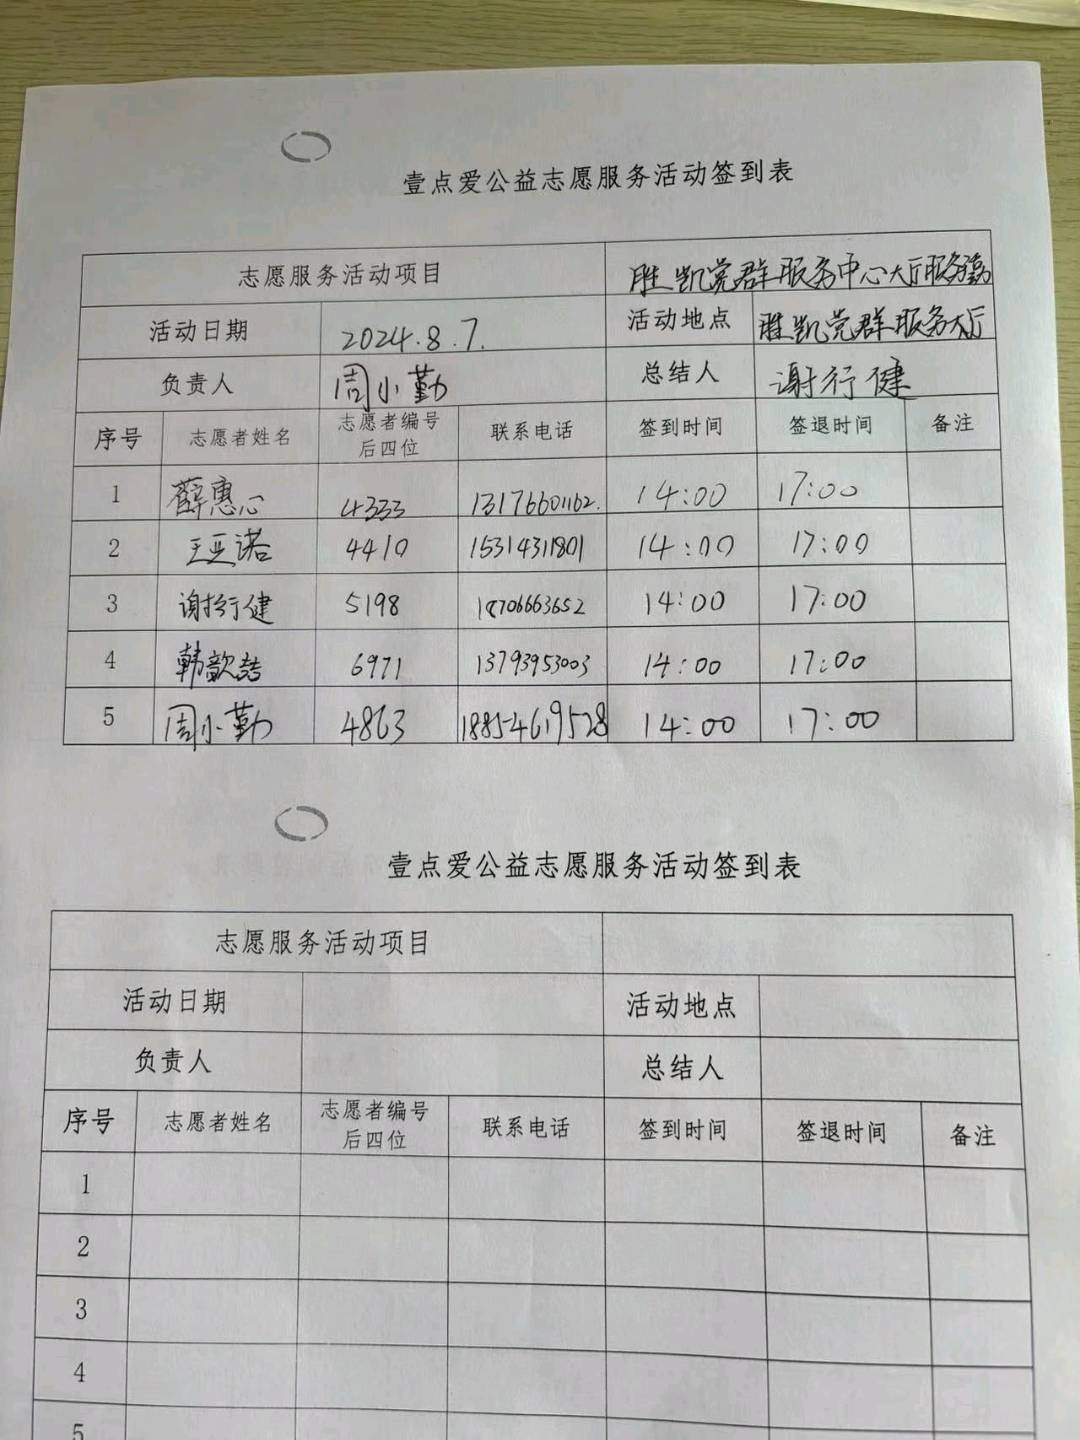 壹点爱公益志愿服务活动签到表
志愿服务活动项目 胜凯党群服务中心大厅服务
活动日期 2024.8.7. 活动地点 胜凯党群服务大厅
负责人 周小勤 总结人 谢行健
序号 志愿者姓名 志愿者编号后四位 联系电话 签到时间 签退时间 备注
1 薛惠心 4333 13176601162. 14:00 17:00
2 王亚诺 4410 15314311801 14:00 17:00
3 谢行健 5198 18706663652 14:00 17:00
4 韩歆喆 6971 13793953003 14:00 17:00
5 周小勤 4863 18854619528 14:00 17:00
壹点爱公益志愿服务活动签到表
志愿服务活动项目
活动日期 活动地点
负责人 总结人
序号 志愿者姓名 志愿者编号后四位 联系电话 签到时间 签退时间 备注
1
2
3
4
5